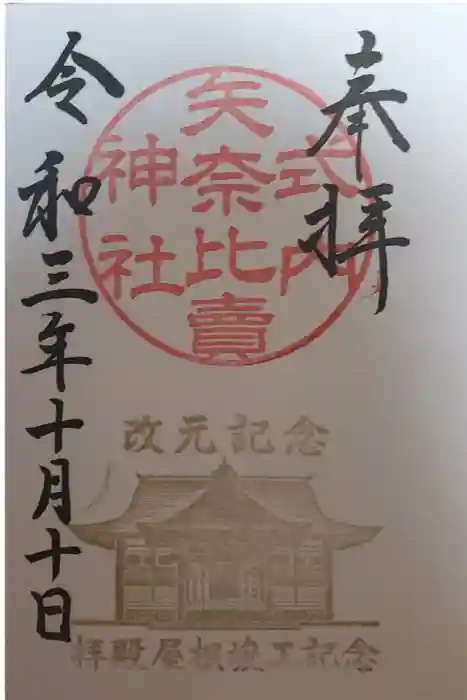 奉拝
式内
矢奈比賣
神社
令和三年十月十日
改元記念
拝殿屋根竣工記念